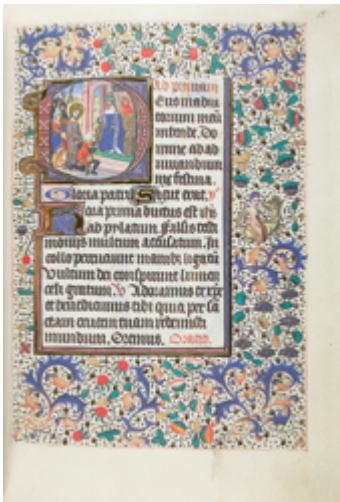 Ad primam
Deus in adiu
torium meū
intende. Do
mine ad ad
iuuandum
me festina.
Gloria patri. Sicut erat. ỹ
Hora prima ductus est ihs
ad pylatum falsis testi
moniis multum accusatum. In
collo percutiunt manib3 ligatū
Vultum dei conspuunt lumen
celi gratum. V Adoramus te xp̄e
et benedicimus tibi quia per sā
ctam crucem tuam redemisti
mundum. Oremus. Oratio.